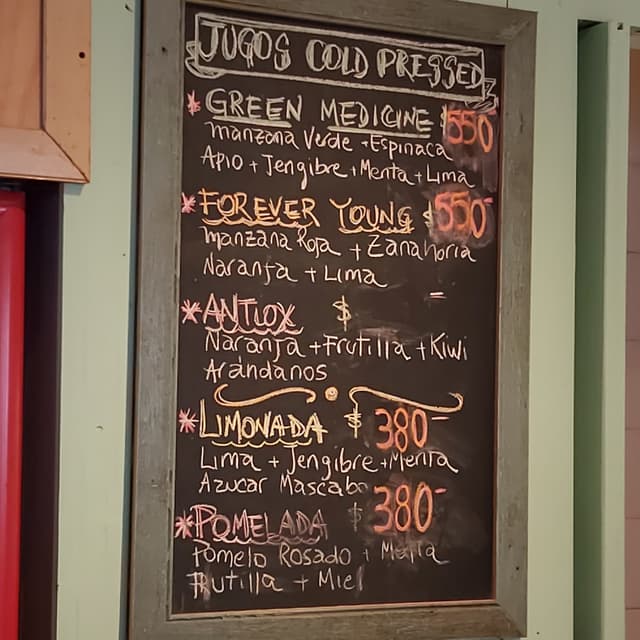 JUGOS COLD PRESSED
* GREEN MEDICINE $550-
manzana Verde + Espinaca
Apio + Jengibre + Menta + Lima
* FOREVER YOUNG $550-
manzana Roja + Zanahoria
Naranja + Lima
* ANTIOX $
Naranja + Frutilla + Kiwi
Arandanos
* LIMONADA $ 380-
Lima + Jengibre + Menta
Azucar Mascabo
* POMELADA $ 380-
Pomelo Rosado + Menta
Frutilla + Miel